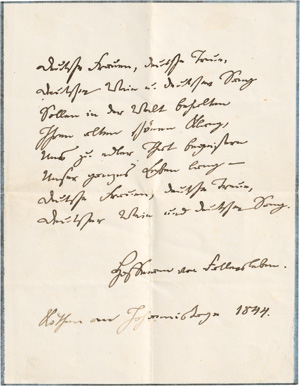 Deutsche Frauen, deutsche Treue,
Deutscher Wein u. deutscher Sang
Sollen in der Welt behalten
Ihren alten schönen Klang,
Uns zu edler That begeistern
Unser ganzes Leben lang –
Deutsche Frauen, deutsche Treue,
Deutscher Wein und deutscher Sang.
Hoffmann von Fallersleben.
Köthen am Johannistage 1844.